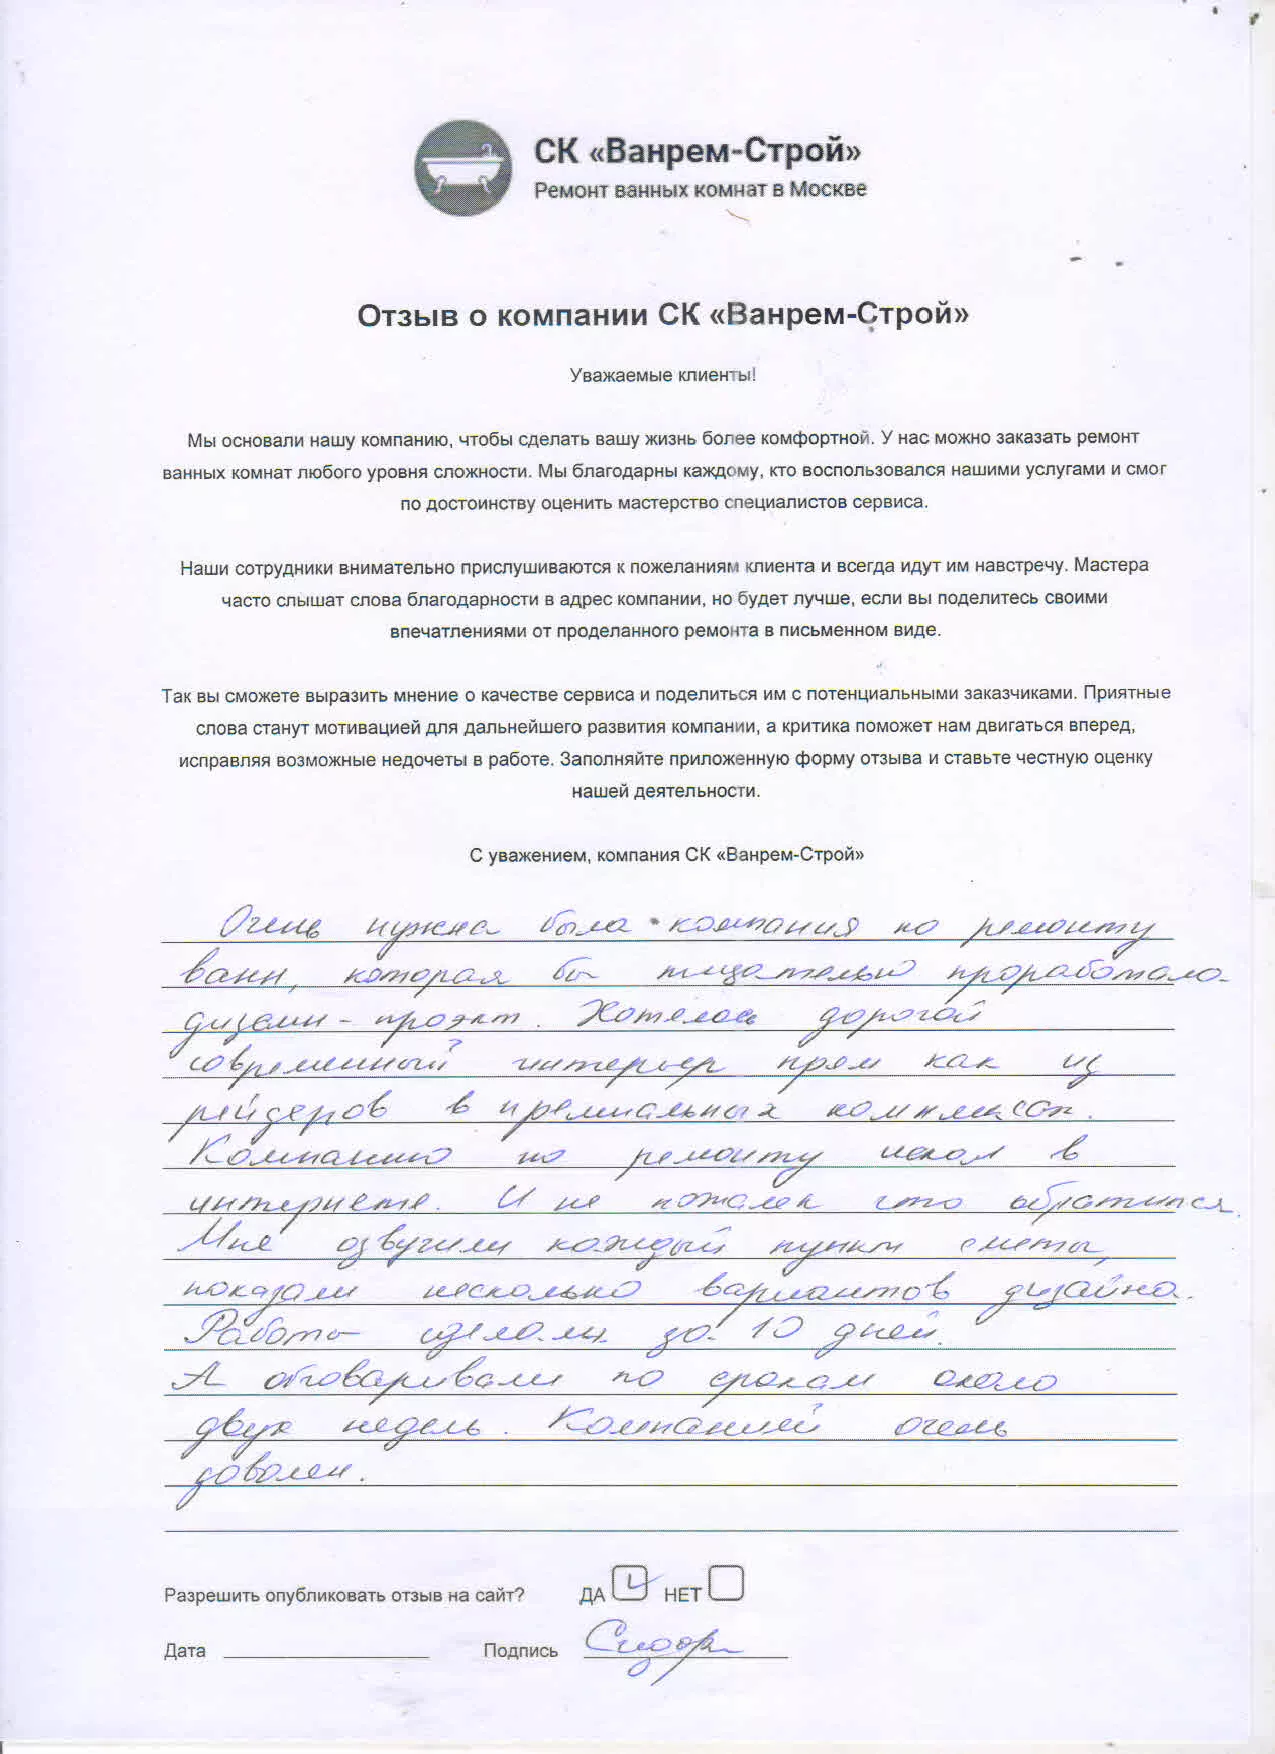 СК «Ванрем-Строй»
Ремонт ванных комнат в Москве
Отзыв о компании СК «Ванрем-Строй»
Уважаемые клиенты!
Мы основали нашу компанию, чтобы сделать вашу жизнь более комфортной. У нас можно заказать ремонт
ванных комнат любого уровня сложности. Мы благодарны каждому, кто воспользовался нашими услугами и смог
по достоинству оценить мастерство специалистов сервиса.
Наши сотрудники внимательно прислушиваются к пожеланиям клиента и всегда идут им навстречу. Мастера
часто слышат слова благодарности в адрес компании, но будет лучше, если вы поделитесь своими
впечатлениями от проделанного ремонта в письменном виде.
Так вы сможете выразить мнение о качестве сервиса и поделиться им с потенциальными заказчиками. Приятные
слова станут мотивацией для дальнейшего развития компании, а критика поможет нам двигаться вперед,
исправляя возможные недочеты в работе. Заполняйте приложенную форму отзыва и ставьте честную оценку
нашей деятельности.
С уважением, компания СК «Ванрем-Строй»
Очень нужна была компания по ремонту
ванн, которая бы тщательно проработала
дизайн-проэкт. Хотелось дорогой
современный интерьер прям как из
рендеров в премиальных комплексах.
Компанию по ремонту искал в
интернете. И не пожалел что обратился.
Мне озвучили каждый пункт сметы,
показали несколько вариантов дизайна.
Работы сделали за 10 дней.
А обговаривали по срокам около
двух недель. Компанией очень
доволен.
Разрешить опубликовать отзыв на сайт? ДА НЕТ
Дата Подпись Сидор